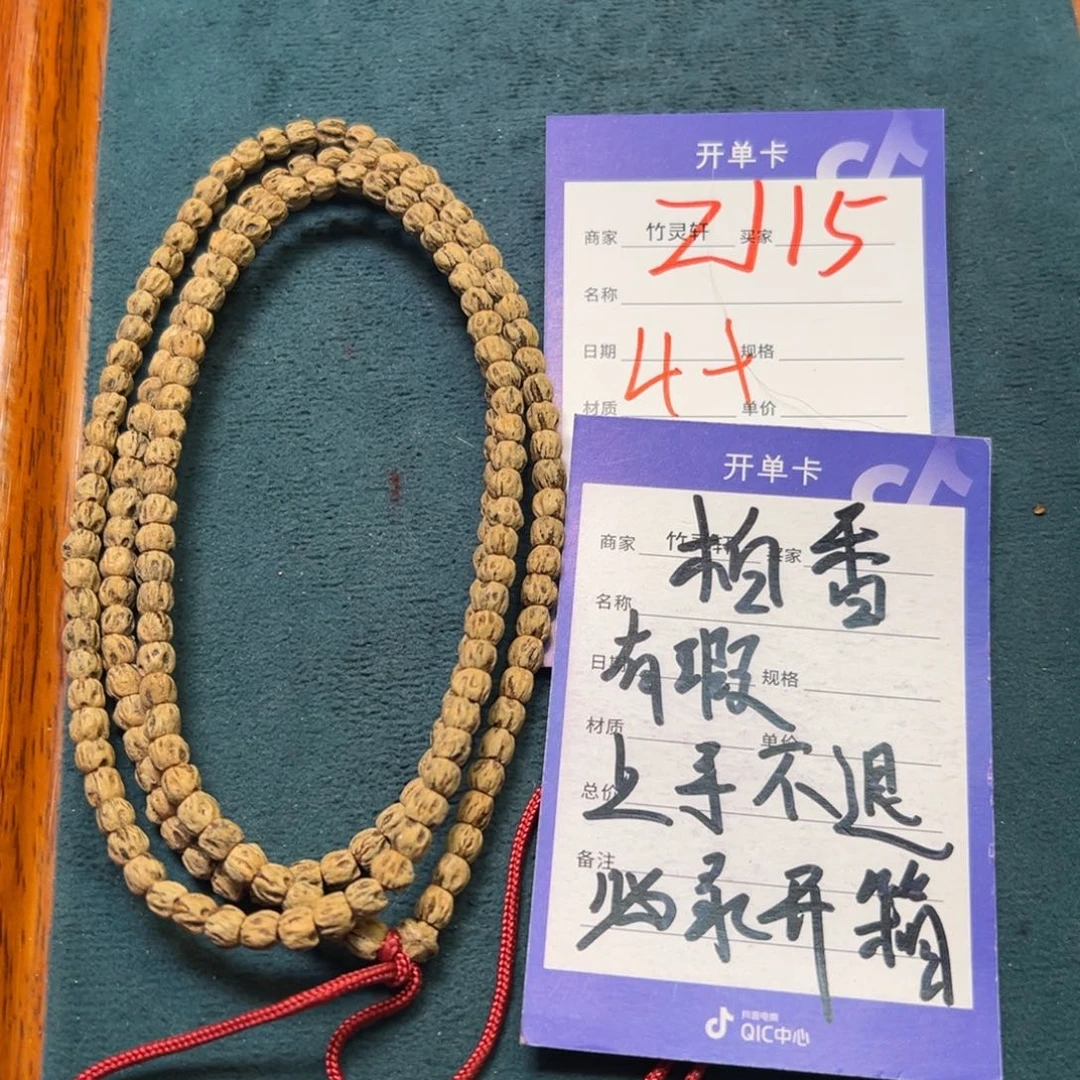 开单卡
商家 竹灵轩 买家
Z115
名称
日期 规格
4+
材质 单价
开单卡
商家 竹灵轩 买家
柏香
名称
有瑕
日期 规格
材质 单价
上手不退
总价
备注
必录开箱
抖音电商
QIC中心